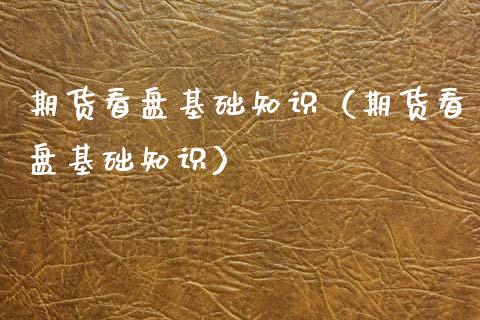 期货看盘基础知识（期货看
盘基础知识）